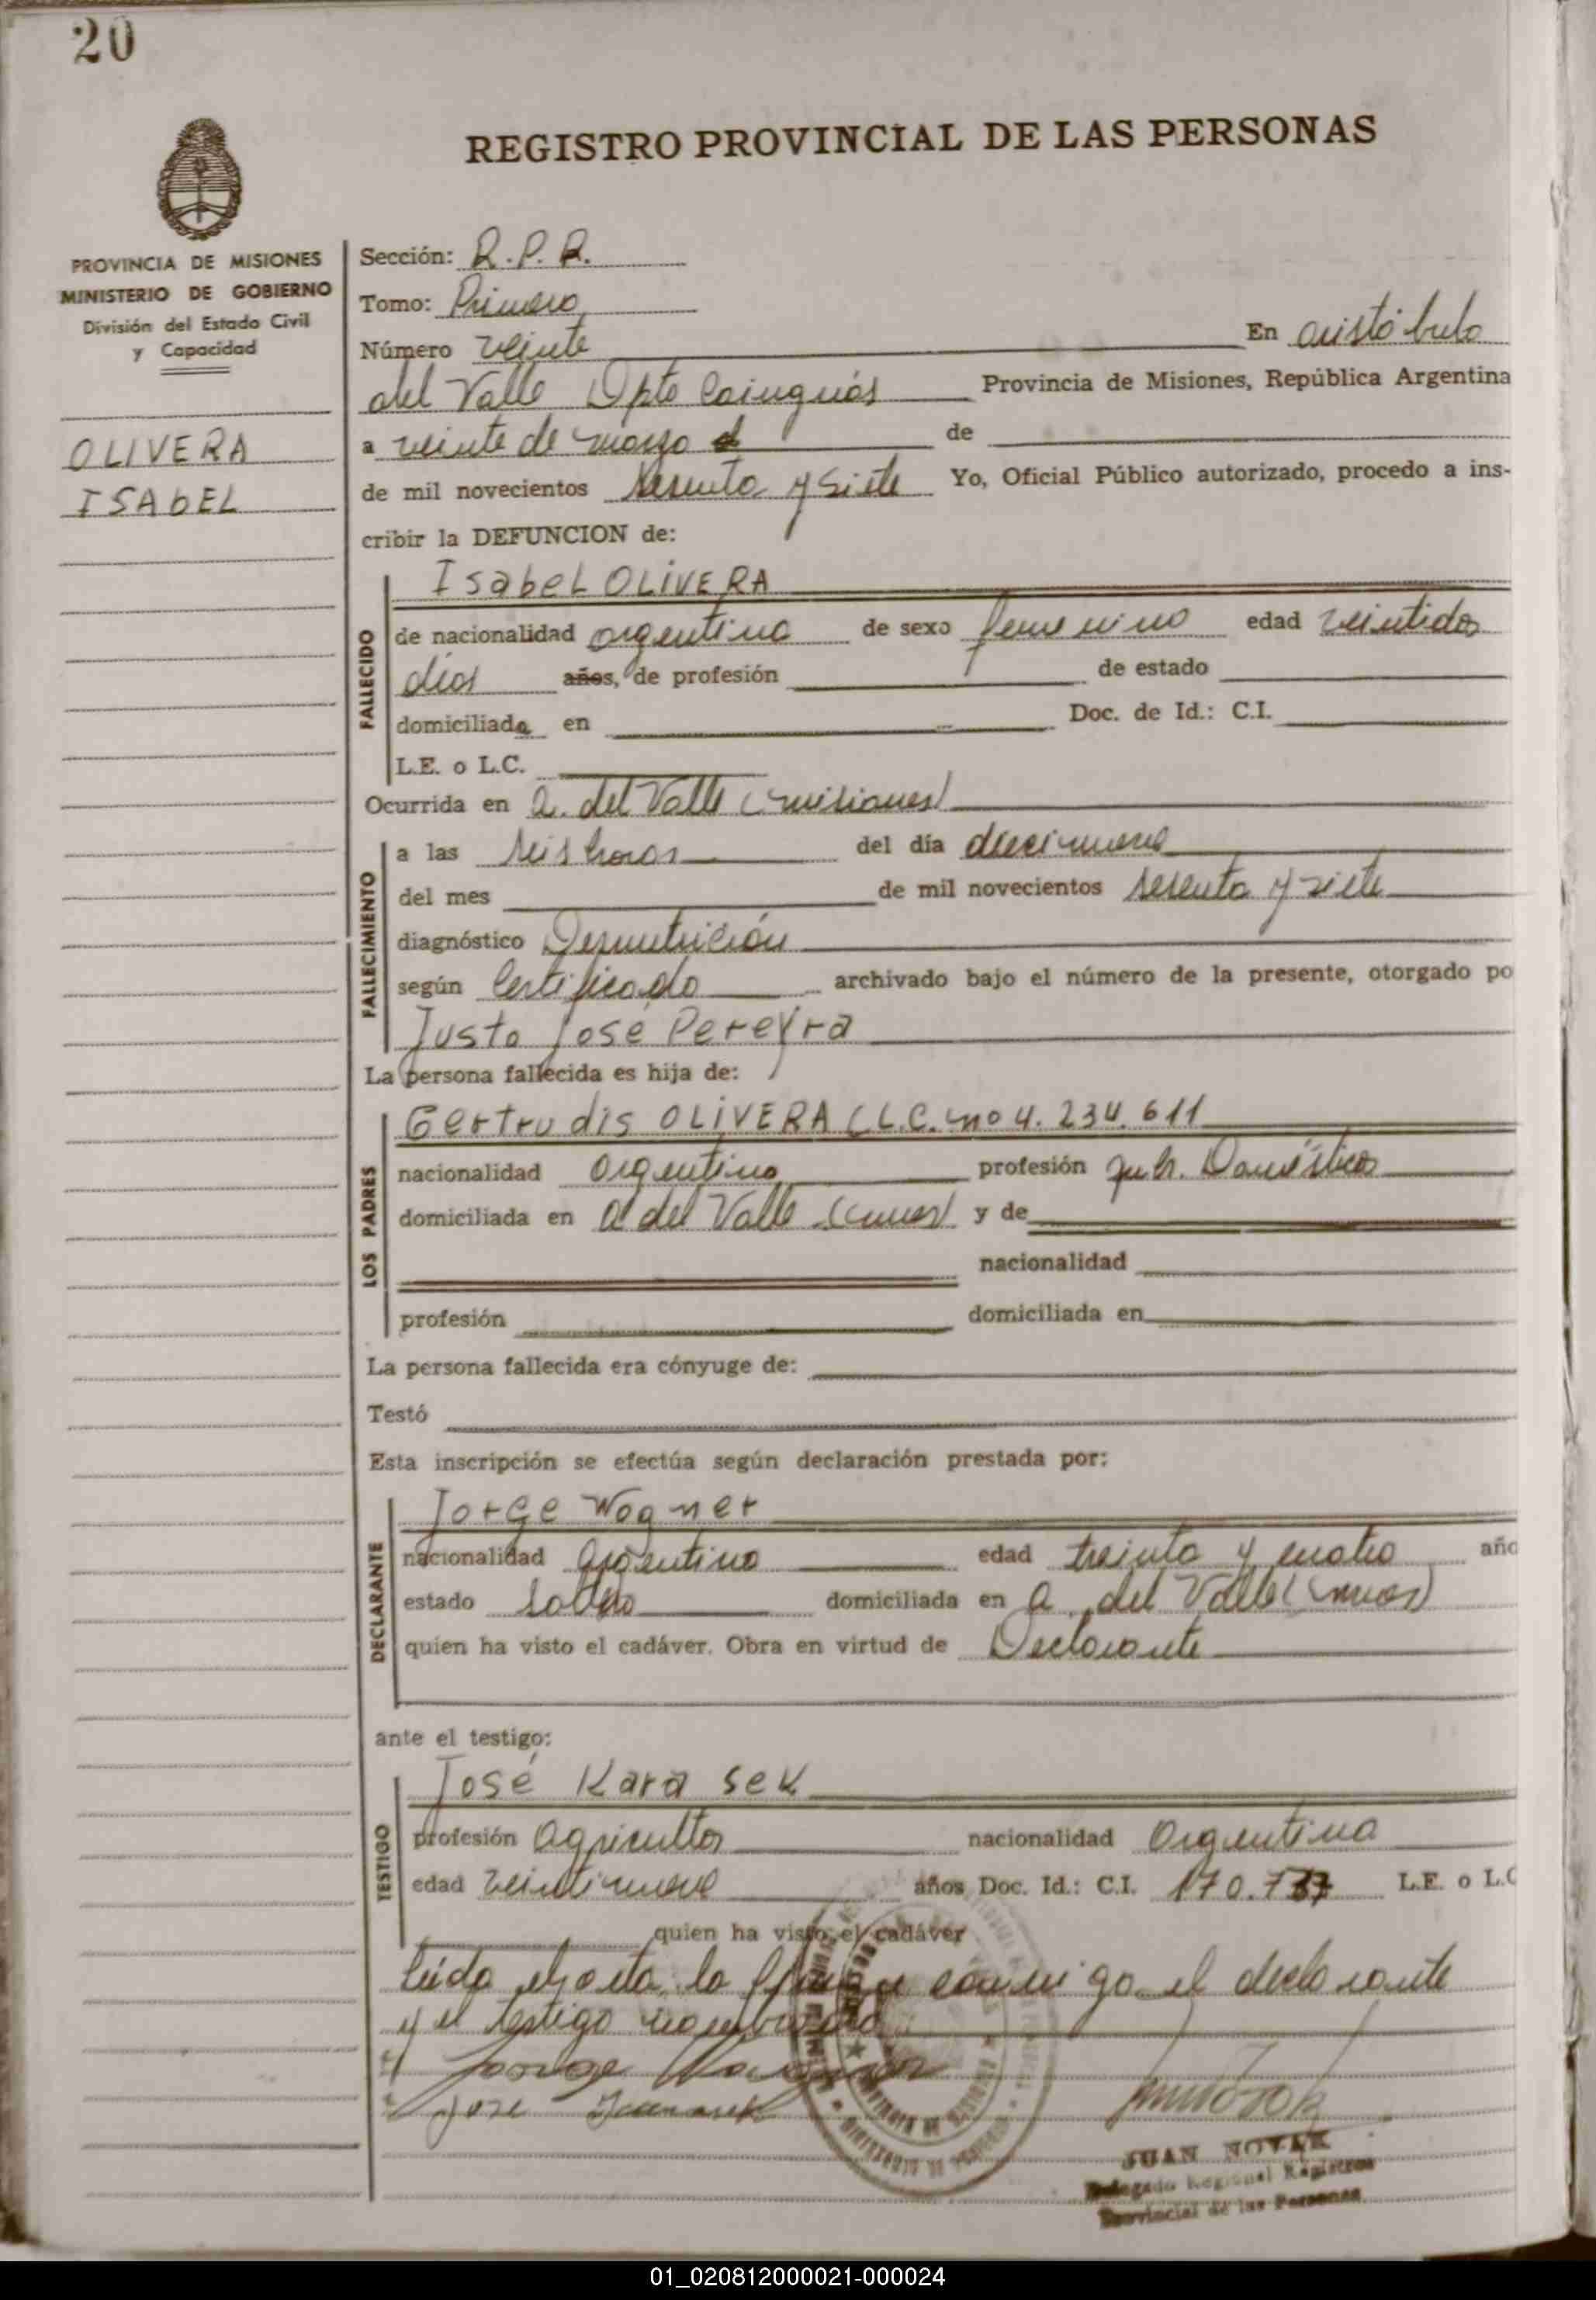 20
REGISTRO PROVINCIAL DE LAS PERSONAS
PROVINCIA DE MISIONES
MINISTERIO DE GOBIERNO
División del Estado Civil
y Capacidad
OLIVERA
ISAbEL
Sección: R.P.P.
Tomo: Primero
Número veinte En aristóbulo
del Valle Dpto Cainguás Provincia de Misiones, República Argentina
a veinte de marzo de
de mil novecientos sesenta y siete Yo, Oficial Público autorizado, procedo a ins-
cribir la DEFUNCION de:
FALLECIDO
Isabel OLIVERA
de nacionalidad argentina de sexo femenino edad veintidos
días años, de profesión de estado
domiciliada en Doc. de Id.: C.I.
L.E. o L.C.
Ocurrida en a. del Valle (misiones)
FALLECIMIENTO
a las seis horas del día diecinueve
del mes de mil novecientos sesenta y siete
diagnóstico Desnutrición
según Certificado archivado bajo el número de la presente, otorgado po
Justo José Pereyra
La persona fallecida es hija de:
LOS PADRES
Gertrudis OLIVERA (L.C. no 4.234.611
nacionalidad argentina profesión Domésticos
domiciliada en a del Valle y de
nacionalidad
profesión domiciliada en
La persona fallecida era cónyuge de:
Testó
Esta inscripción se efectúa según declaración prestada por:
DECLARANTE
Jorge Wagner
nacionalidad argentino edad treinta y cuatro año
estado soltero domiciliada en a. del Valle
quien ha visto el cadáver. Obra en virtud de Declarante
ante el testigo:
TESTIGO
José Karasek
profesión agricultor nacionalidad argentina
edad veintinueve años Doc. Id.: C.I. 170. L.E. o L.C
quien ha visto el cadáver
Leída el acta, la firma conmigo el declarante
y el testigo nombrado
Jorge Wagner
Jose Karasek
JUAN NOVAK
Delegado Regional Registros
Provincial de las Personas
01_020812000021-000024